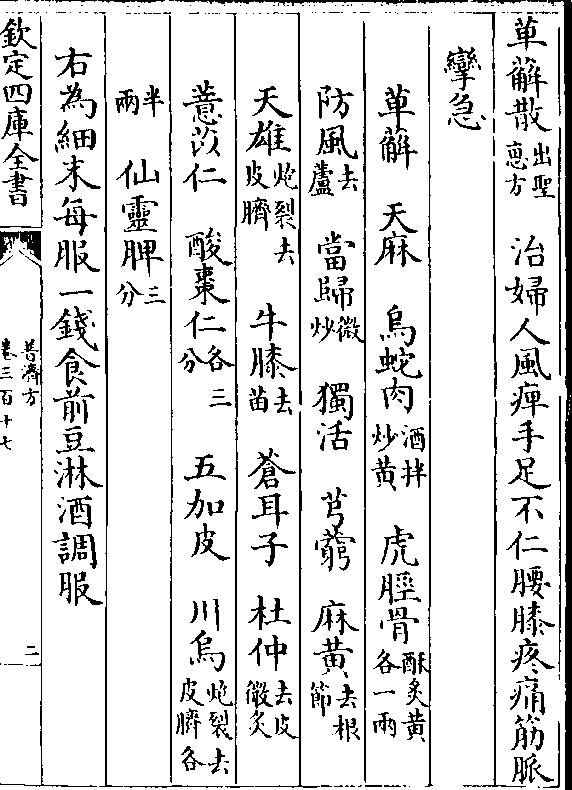 萆薢散出聖惠方 治婦人風痺手足不仁腰膝疼痛筋脈
攣急
萆薢 天麻 烏蛇肉酒拌炒黄 虎脛骨酥炙黄各一兩
防風去蘆 當歸微炒 獨活 芎藭 麻黄去根節
天雄炮裂去皮臍 牛膝去苗 蒼耳子 杜仲去皮微炙
薏苡仁 酸棗仁各三分 五加皮 川烏炮裂去皮臍各
半兩 仙靈脾三分
右為細末每服一錢食前豆淋酒調服
欽定四庫全書
普濟方
卷三百十七
二